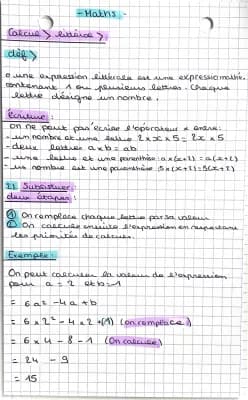 - Maths -
Calcul > littéral >
déf >
• une expression littérale est une expression mathé.
contenant 1 ou plusieurs lettres. Chaque
lettre désigne un nombre.
Ecriture:
on ne peut pas écrire l'opérateur x entre:
- un nombre et une lettre 2 x x x 5 = 2x x 5
- deux lettres a x b = ab
- une lettre et une parenthèse: a x (x+2) = a(x+2)
- un nombre est une parenthèse: 5 x (x+2) = 5(x+2)
2) Substituer:
deux étapes:
① On remplace chaque lettre par sa valeur
② On calcule ensuite l'expression en respectant
les priorités de calculs.
Exemple:
On peut calculer la valeur de l'expression
pour a = 2 et b = 1
= 6a² - 4a + b
= 6 x 2² - 4 x 2 + (1) (on remplace)
= 6 x 4 - 8 - 1 (On calcule)
= 24 - 9
= 15